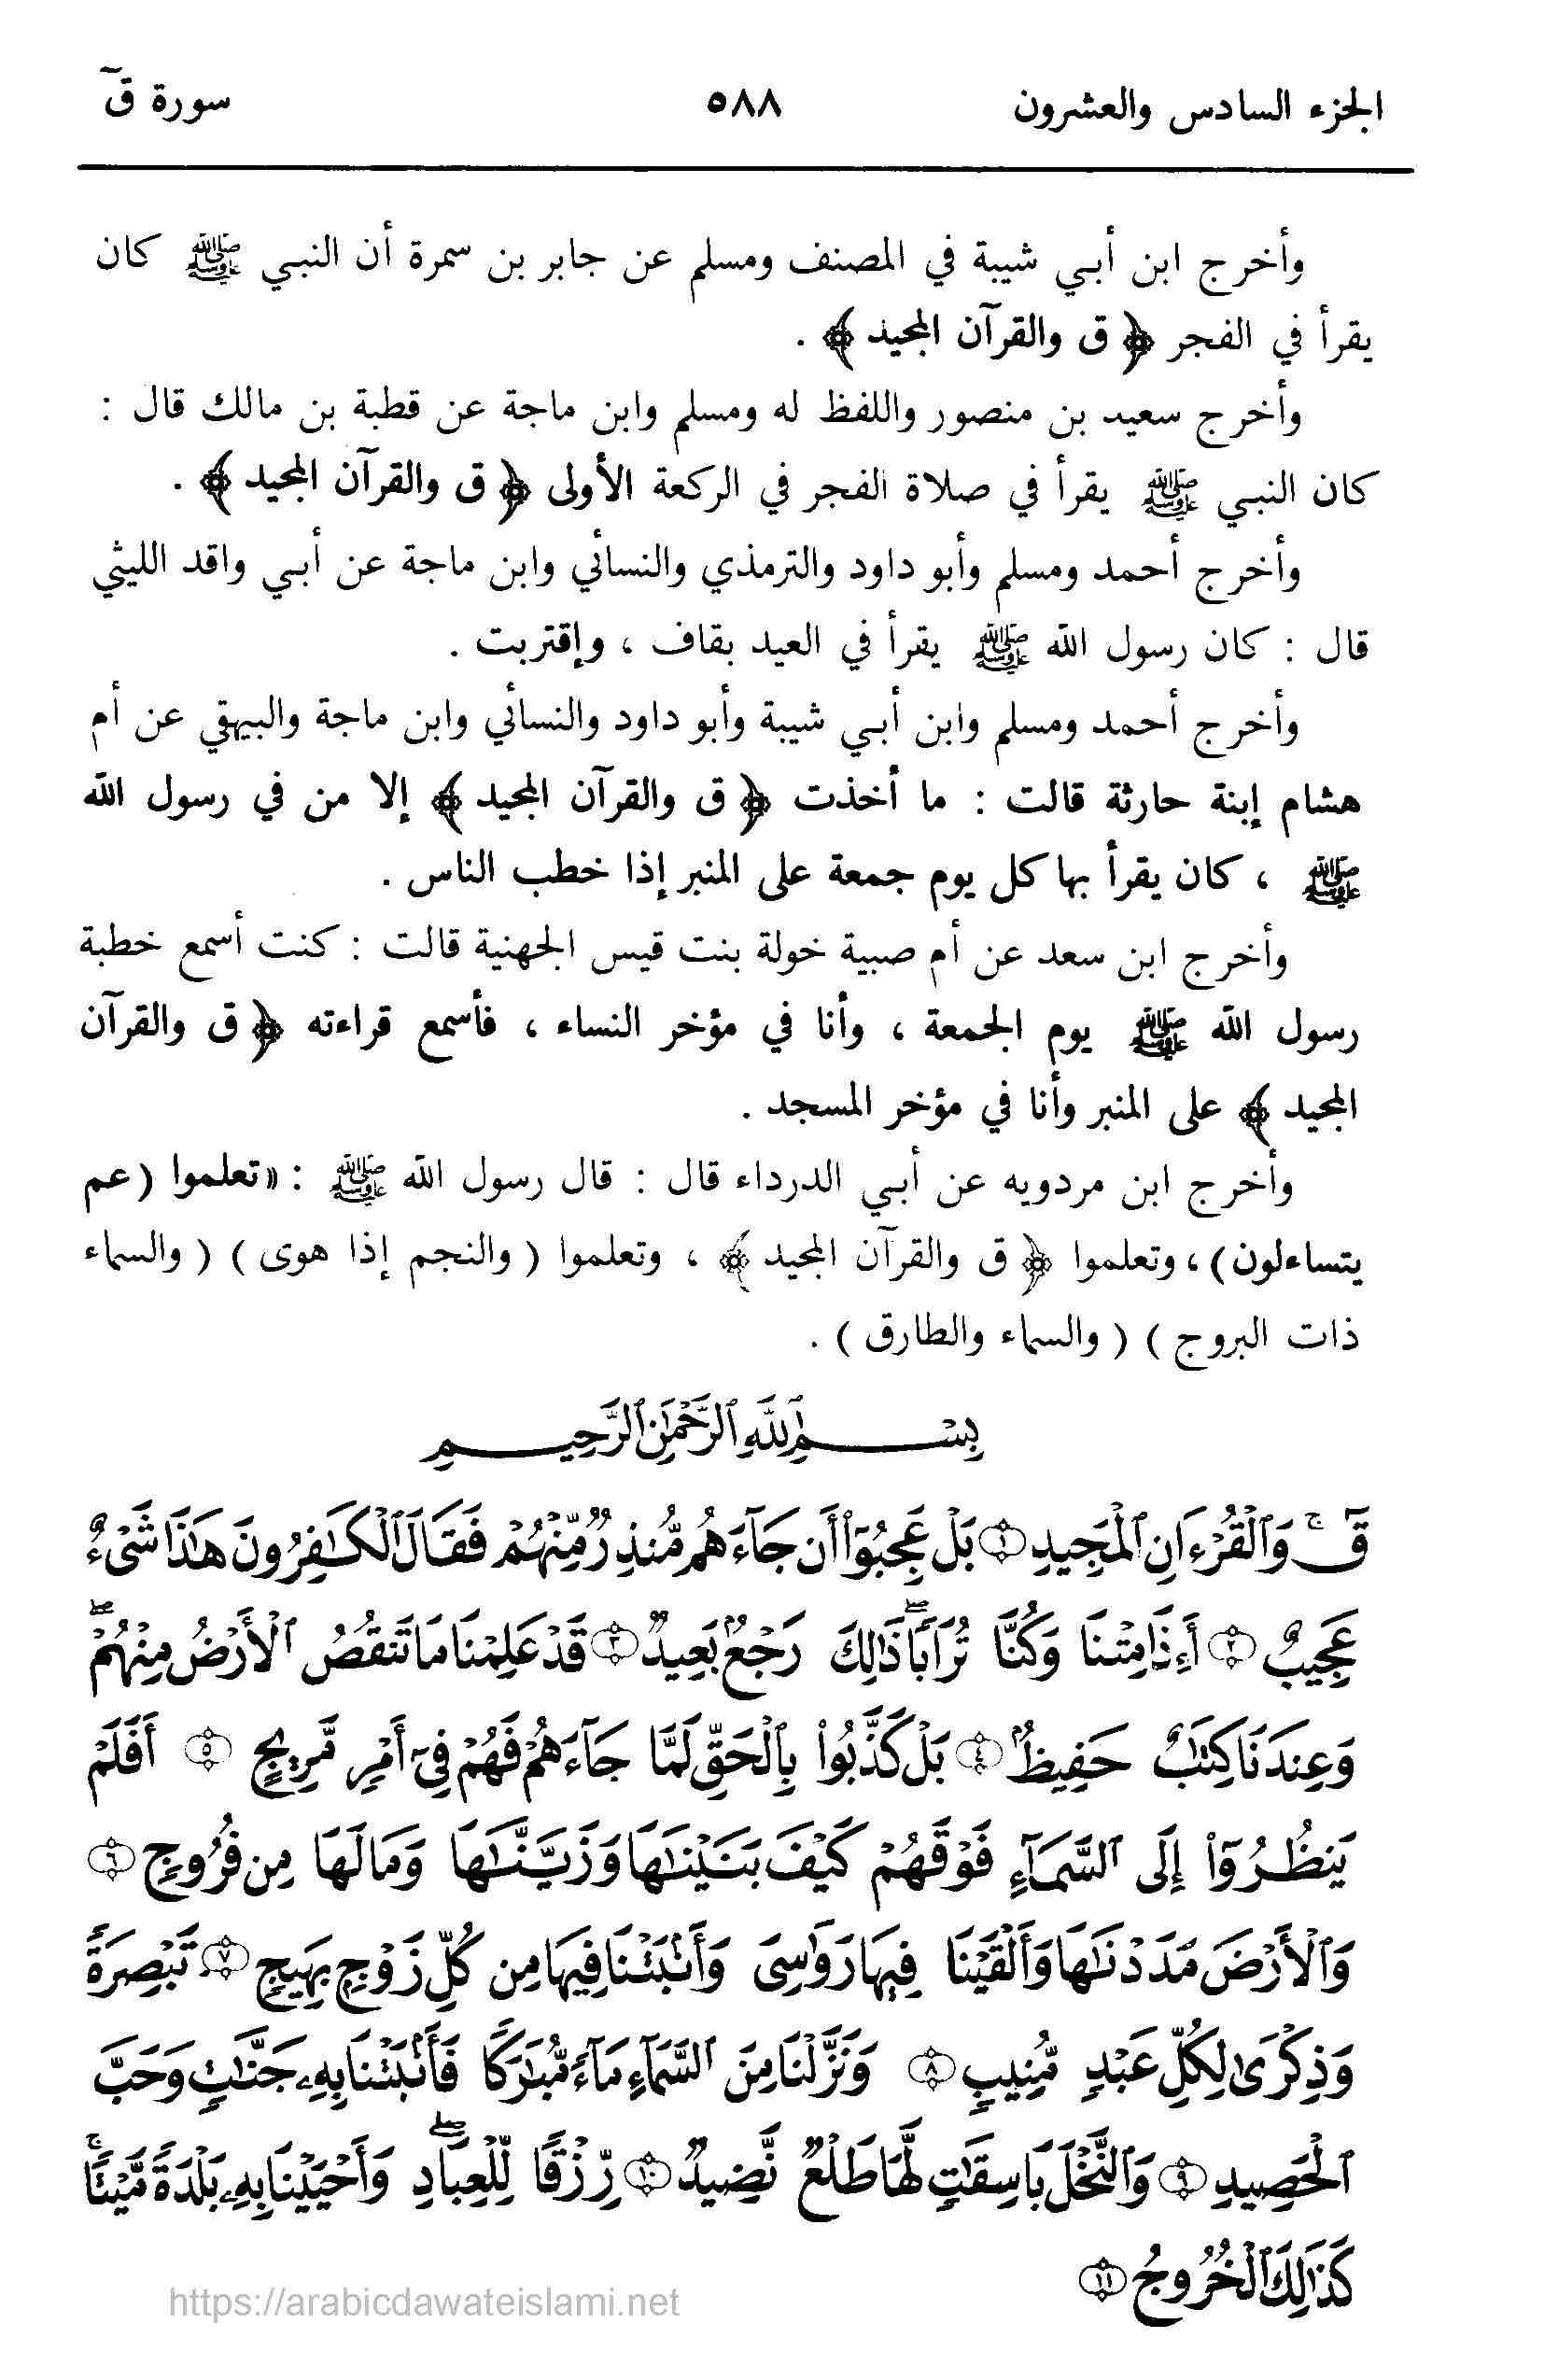 الجزء السادس والعشرون ٥٨٨ سورة قٓ
وأخرج ابن أبـي شيبة في المصنف ومسلم عن جابر بن سمرة أن النبـي ﷺ كان
يقرأ في الفجر ﴿ ق والقرآن المجيد ﴾ .
وأخرج سعيد بن منصور واللفظ له ومسلم وابن ماجة عن قطبة بن مالك قال :
كان النبـي ﷺ يقرأ في صلاة الفجر في الركعة الأولى ﴿ ق والقرآن المجيد ﴾ .
وأخرج أحمد ومسلم وأبو داود والترمذي والنسائي وابن ماجة عن أبـي واقد الليثي
قال : كان رسول الله ﷺ يقرأ في العيد بقاف ، وإقتربت .
وأخرج أحمد ومسلم وابن أبـي شيبة وأبو داود والنسائي وابن ماجة والبيهقي عن أم
هشام إبنة حارثة قالت : ما أخذت ﴿ ق والقرآن المجيد ﴾ إلا من في رسول الله
ﷺ ، كان يقرأ بها كل يوم جمعة على المنبر إذا خطب الناس .
وأخرج ابن سعد عن أم صبية خولة بنت قيس الجهنية قالت : كنت أسمع خطبة
رسول الله ﷺ يوم الجمعة ، وأنا في مؤخر النساء ، فأسمع قراءته ﴿ ق والقرآن
المجيد ﴾ على المنبر وأنا في مؤخر المسجد .
وأخرج ابن مردويه عن أبـي الدرداء قال : قال رسول الله ﷺ : «تعلموا (عم
يتساءلون) ، وتعلموا ﴿ ق والقرآن المجيد ﴾ ، وتعلموا ( والنجم إذا هوى ) ( والسماء
ذات البروج ) ( والسماء والطارق ) .
بِسْمِ ٱللَّهِ ٱلرَّحْمَٰنِ ٱلرَّحِيمِ
قٓ ۚ وَٱلْقُرْءَانِ ٱلْمَجِيدِ ١ بَلْ عَجِبُوٓا۟ أَن جَآءَهُم مُّنذِرٌ مِّنْهُمْ فَقَالَ ٱلْكَٰفِرُونَ هَٰذَا شَىْءٌ
عَجِيبٌ ٢ أَءِذَا مِتْنَا وَكُنَّا تُرَابًا ۖ ذَٰلِكَ رَجْعٌۢ بَعِيدٌ ٣ قَدْ عَلِمْنَا مَا تَنقُصُ ٱلْأَرْضُ مِنْهُمْ ۖ
وَعِندَنَا كِتَٰبٌ حَفِيظٌۢ ٤ بَلْ كَذَّبُوا۟ بِٱلْحَقِّ لَمَّا جَآءَهُمْ فَهُمْ فِىٓ أَمْرٍ مَّرِيجٍ ٥ أَفَلَمْ
يَنظُرُوٓا۟ إِلَى ٱلسَّمَآءِ فَوْقَهُمْ كَيْفَ بَنَيْنَٰهَا وَزَيَّنَّٰهَا وَمَا لَهَا مِن فُرُوجٍ ٦
وَٱلْأَرْضَ مَدَدْنَٰهَا وَأَلْقَيْنَا فِيهَا رَوَٰسِىَ وَأَنۢبَتْنَا فِيهَا مِن كُلِّ زَوْجٍۭ بَهِيجٍ ٧ تَبْصِرَةً
وَذِكْرَىٰ لِكُلِّ عَبْدٍ مُّنِيبٍ ٨ وَنَزَّلْنَا مِنَ ٱلسَّمَآءِ مَآءً مُّبَٰرَكًا فَأَنۢبَتْنَا بِهِۦ جَنَّٰتٍ وَحَبَّ
ٱلْحَصِيدِ ٩ وَٱلنَّخْلَ بَاسِقَٰتٍ لَّهَا طَلْعٌ نَّضِيدٌ ١٠ رِّزْقًا لِّلْعِبَادِ ۖ وَأَحْيَيْنَا بِهِۦ بَلْدَةً مَّيْتًا ۚ
كَذَٰلِكَ ٱلْخُرُوجُ ١١
https://arabicdawateislami.net